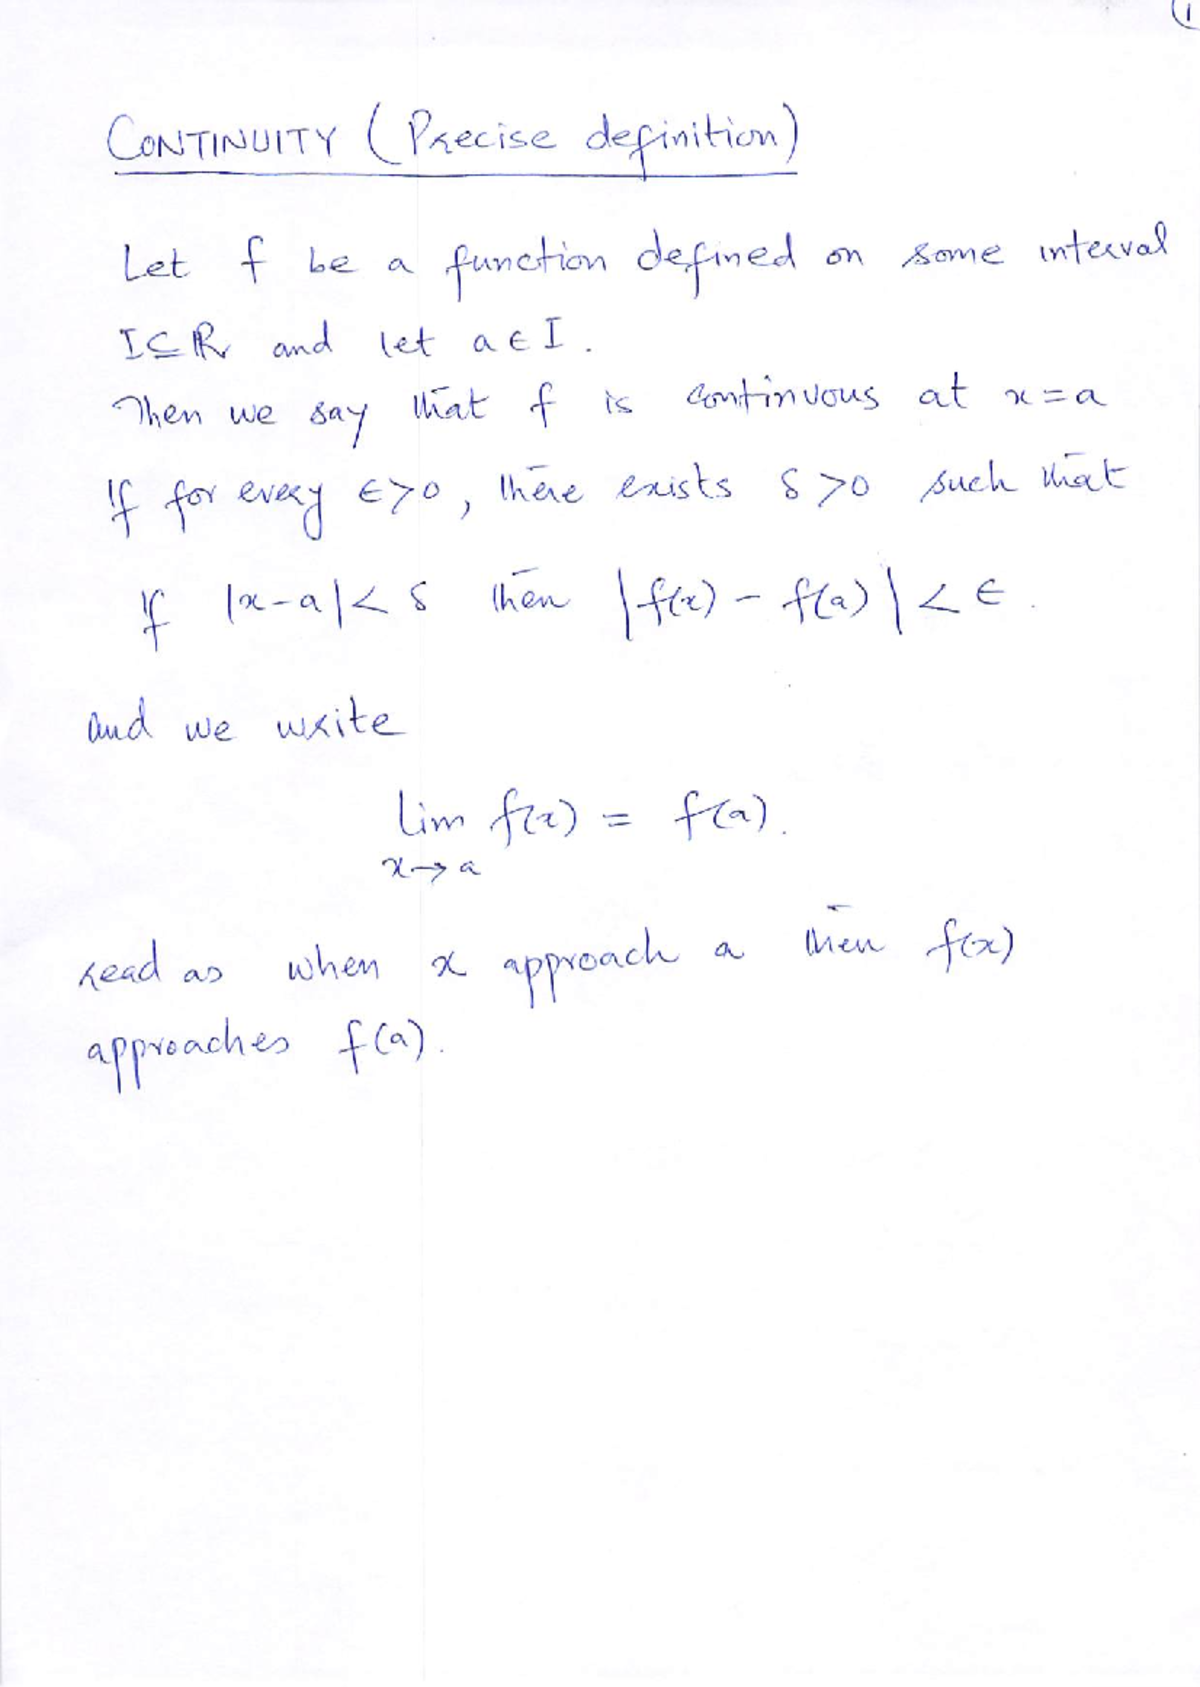 1
CONTINUITY (Precise definition)
Let f be a function defined on some interval
I⊆ℝ and let a∈I.
Then we say that f is continuous at x=a
If for every ∈>0, there exists δ>0 such that
If |x-a|<δ then |f(x) - f(a)|<∈.
and we write
lim f(x) = f(a).
x→a
read as when x approach a then f(x)
approaches f(a).